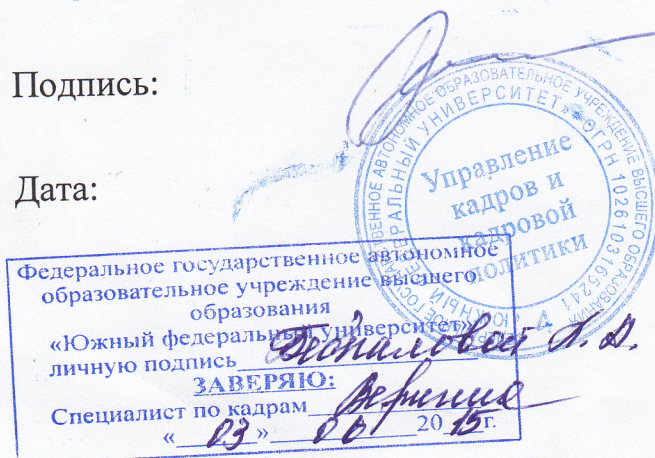 Подпись:
Дата:
ФЕДЕРАЛЬНОЕ ГОСУДАРСТВЕННОЕ АВТОНОМНОЕ ОБРАЗОВАТЕЛЬНОЕ УЧРЕЖДЕНИЕ ВЫСШЕГО ОБРАЗОВАНИЯ
«ЮЖНЫЙ ФЕДЕРАЛЬНЫЙ УНИВЕРСИТЕТ» * ОГРН 1026103165241
Управление
кадров и
кадровой
политики
4
Федеральное государственное автономное
образовательное учреждение высшего
образования
«Южный федеральный университет»
личную подпись
ЗАВЕРЯЮ:
Специалист по кадрам
« 03 » 06 20 15 г.